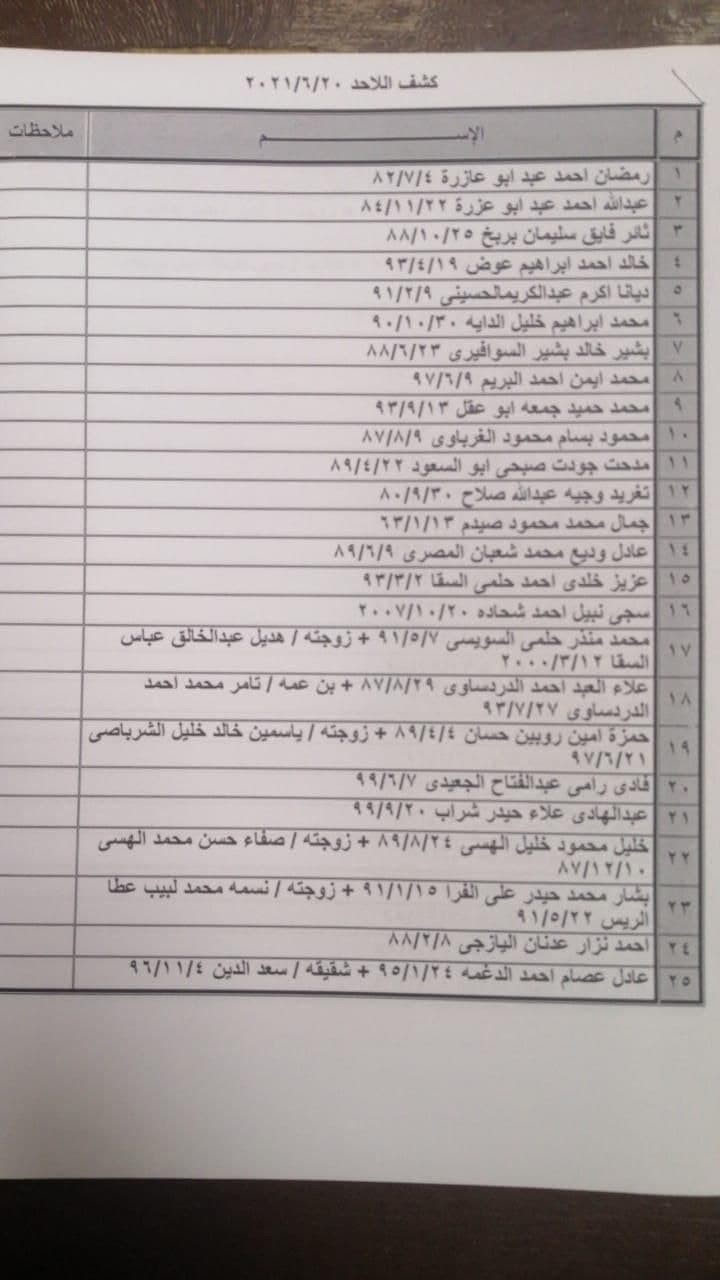 كشف اللاحد ٢٠٢١/٦/٢٠
م الإســـم ملاحظات
١ رمضان احمد عبد ابو عازرة ٨٢/٧/٤
٢ عبدالله احمد عبد ابو عزرة ٨٤/١١/٢٢
٣ ثائر فايق سليمان بريخ ٨٨/١٠/٢٥
٤ خالد احمد ابراهيم عوض ٩٣/٤/١٩
٥ ديانا اكرم عبدالكريمالحسينى ٩١/٢/٩
٦ محمد ابراهيم خليل الدايه ٩٠/١٠/٣٠
٧ بشير خالد بشير السوافيرى ٨٨/٦/٢٣
٨ محمد ايمن احمد البريم ٩٧/٦/٩
٩ محمد حميد جمعه ابو عقل ٩٣/٩/١٣
١٠ محمود بسام محمود الغرباوى ٨٧/٨/٩
١١ مدحت جودت صبحى ابو السعود ٨٩/٤/٢٢
١٢ تغريد وجيه عبدالله صلاح ٨٠/٩/٣٠
١٣ جمال محمد محمود صيدم ٦٣/١/١٣
١٤ عادل وديع محمد شعبان المصرى ٨٩/٦/٩
١٥ عزيز خلدى احمد حلمى السقا ٩٣/٣/٢
١٦ سجى نبيل احمد شحاده ٢٠٠٧/١٠/٢٠
١٧ محمد منذر حلمى السويسى ٩١/٥/٧ + زوجته / هديل عبدالخالق عباس
السقا ٢٠٠٠/٣/١٢
١٨ علاء العبد احمد الدردساوى ٨٧/٨/٢٩ + بن عمه / تامر محمد احمد
الدردساوى ٩٣/٧/٢٧
١٩ حمزة امين روبين حسان ٨٩/٤/٤ + زوجته / ياسمين خالد خليل الشرباصى
٩٧/٦/٢١
٢٠ فادى رامى عبدالفتاح الجعيدى ٩٩/٦/٧
٢١ عبدالهادى علاء حيدر شراب ٩٩/٩/٢٠
٢٢ خليل محمود خليل الهسى ٨٩/٨/٢٤ + زوجته / صفاء حسن محمد الهسى
٨٧/١٢/١٠
٢٣ بشار محمد حيدر على الفرا ٩١/١/١٥ + زوجته / نسمه محمد لبيب عطا
الريس ٩١/٥/٢٢
٢٤ احمد نزار عدنان اليازجى ٨٨/٢/٨
٢٥ عادل عصام احمد الدغمه ٩٥/١/٢٤ + شقيقه / سعد الدين ٩٦/١١/٤